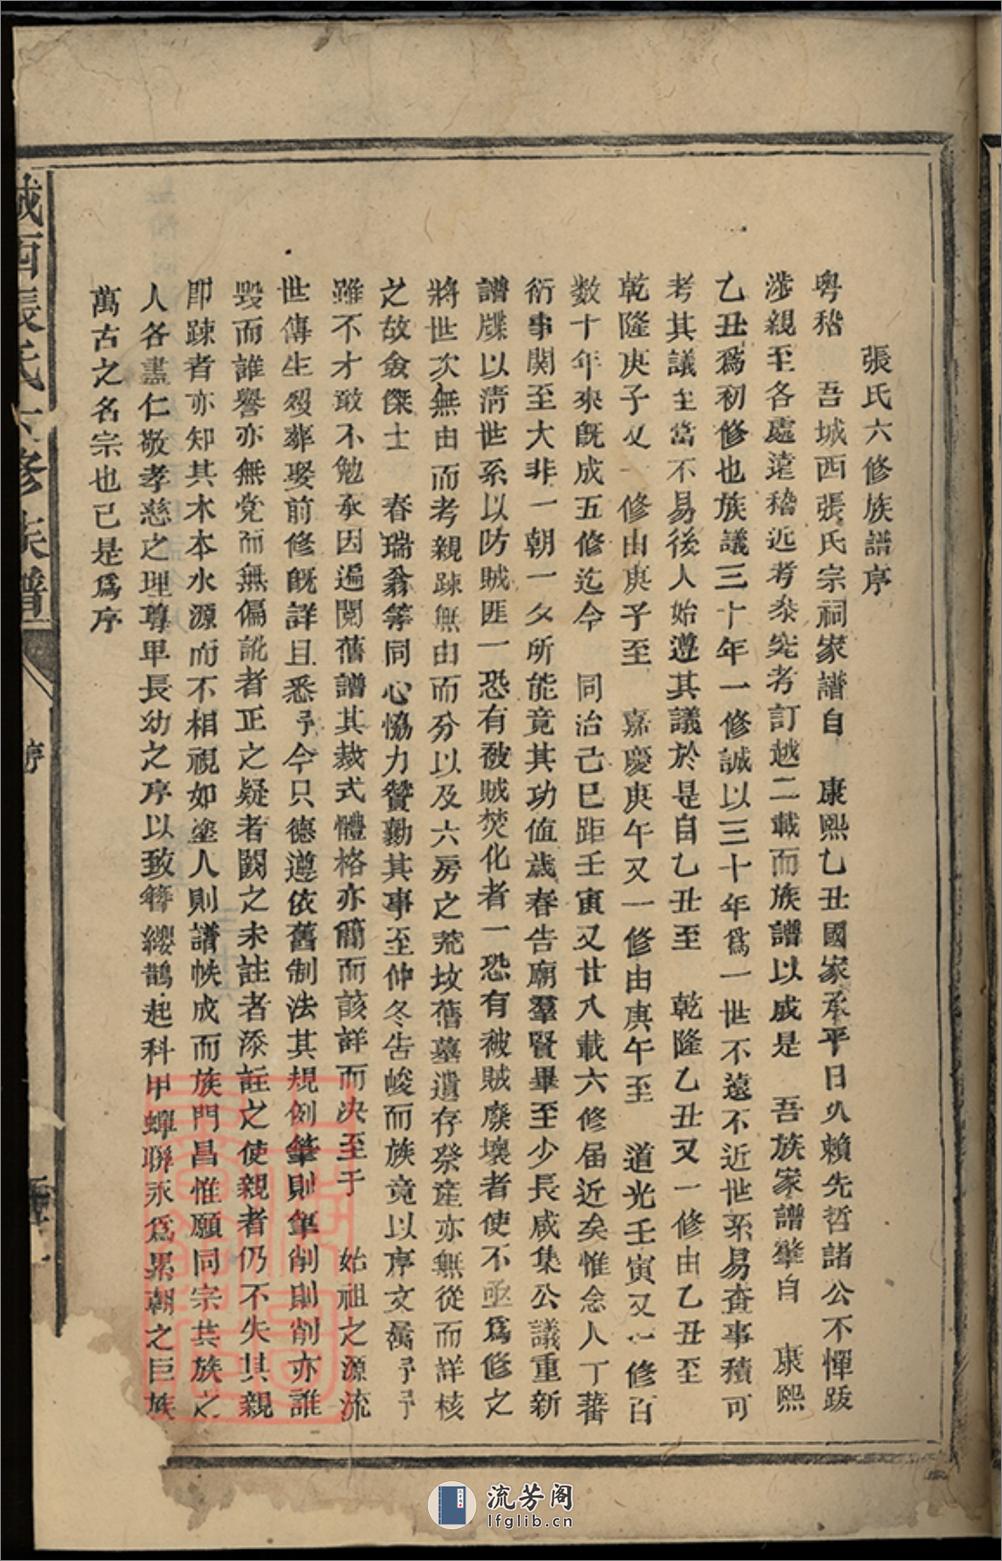 張氏六修族譜序
粤稽 吾城西張氏宗祠家譜自 康熙乙丑國家承平日久賴先哲諸公不憚跋
涉親至各處遠稽近考叅究考訂越二載而族譜以成是 吾族家譜肇自 康熙
乙丑爲初修也族議三十年一修誠以三十年爲一世不遠不近世系易查事積可
考其議至當不易後人始遵其議於是自乙丑至 乾隆乙丑又一修由乙丑至
乾隆庚子又一修由庚子至 嘉慶庚午又一修由庚午至 道光壬寅又一修百
数十年來旣成五修迄今 同治己巳距壬寅又廿八載六修届近矣惟念人丁蕃
衍事関至大非一朝一夕所能竟其功值歲春告廟羣賢畢至少長咸集公議重新
譜牒以清世系以防賊匪一恐有被賊焚化者一恐有被賊廢壞者使不亟爲修之
將世次無由而考親踈無由而分以及六房之荒坟舊墓遺存祭產亦無從而詳核
之故僉傑士 春瑞翁等同心恊力贊勷其事至仲冬告峻而族竟以序文屬予予
雖不才敢不勉承因遍閱舊譜其裁式體格亦簡而該詳而决至于 始祖之源流
世傳生殁葬娶前修旣詳且悉予今只德遵依舊制法其規例筆則筆削則削亦誰
毀而誰譽亦無党而無偏訛者正之疑者闕之未註者添註之使親者仍不失其親
卽踈者亦知其木本水源而不相視如塗人則譜帙成而族門昌惟願同宗共族之
人各盡仁敬孝慈之理尊卑長幼之序以致簪纓鵲起科甲蟬聯永爲累朝之巨族
萬古之名宗也已是爲序
城西張氏六修族譜
序
流芳阁
lfglib.cn